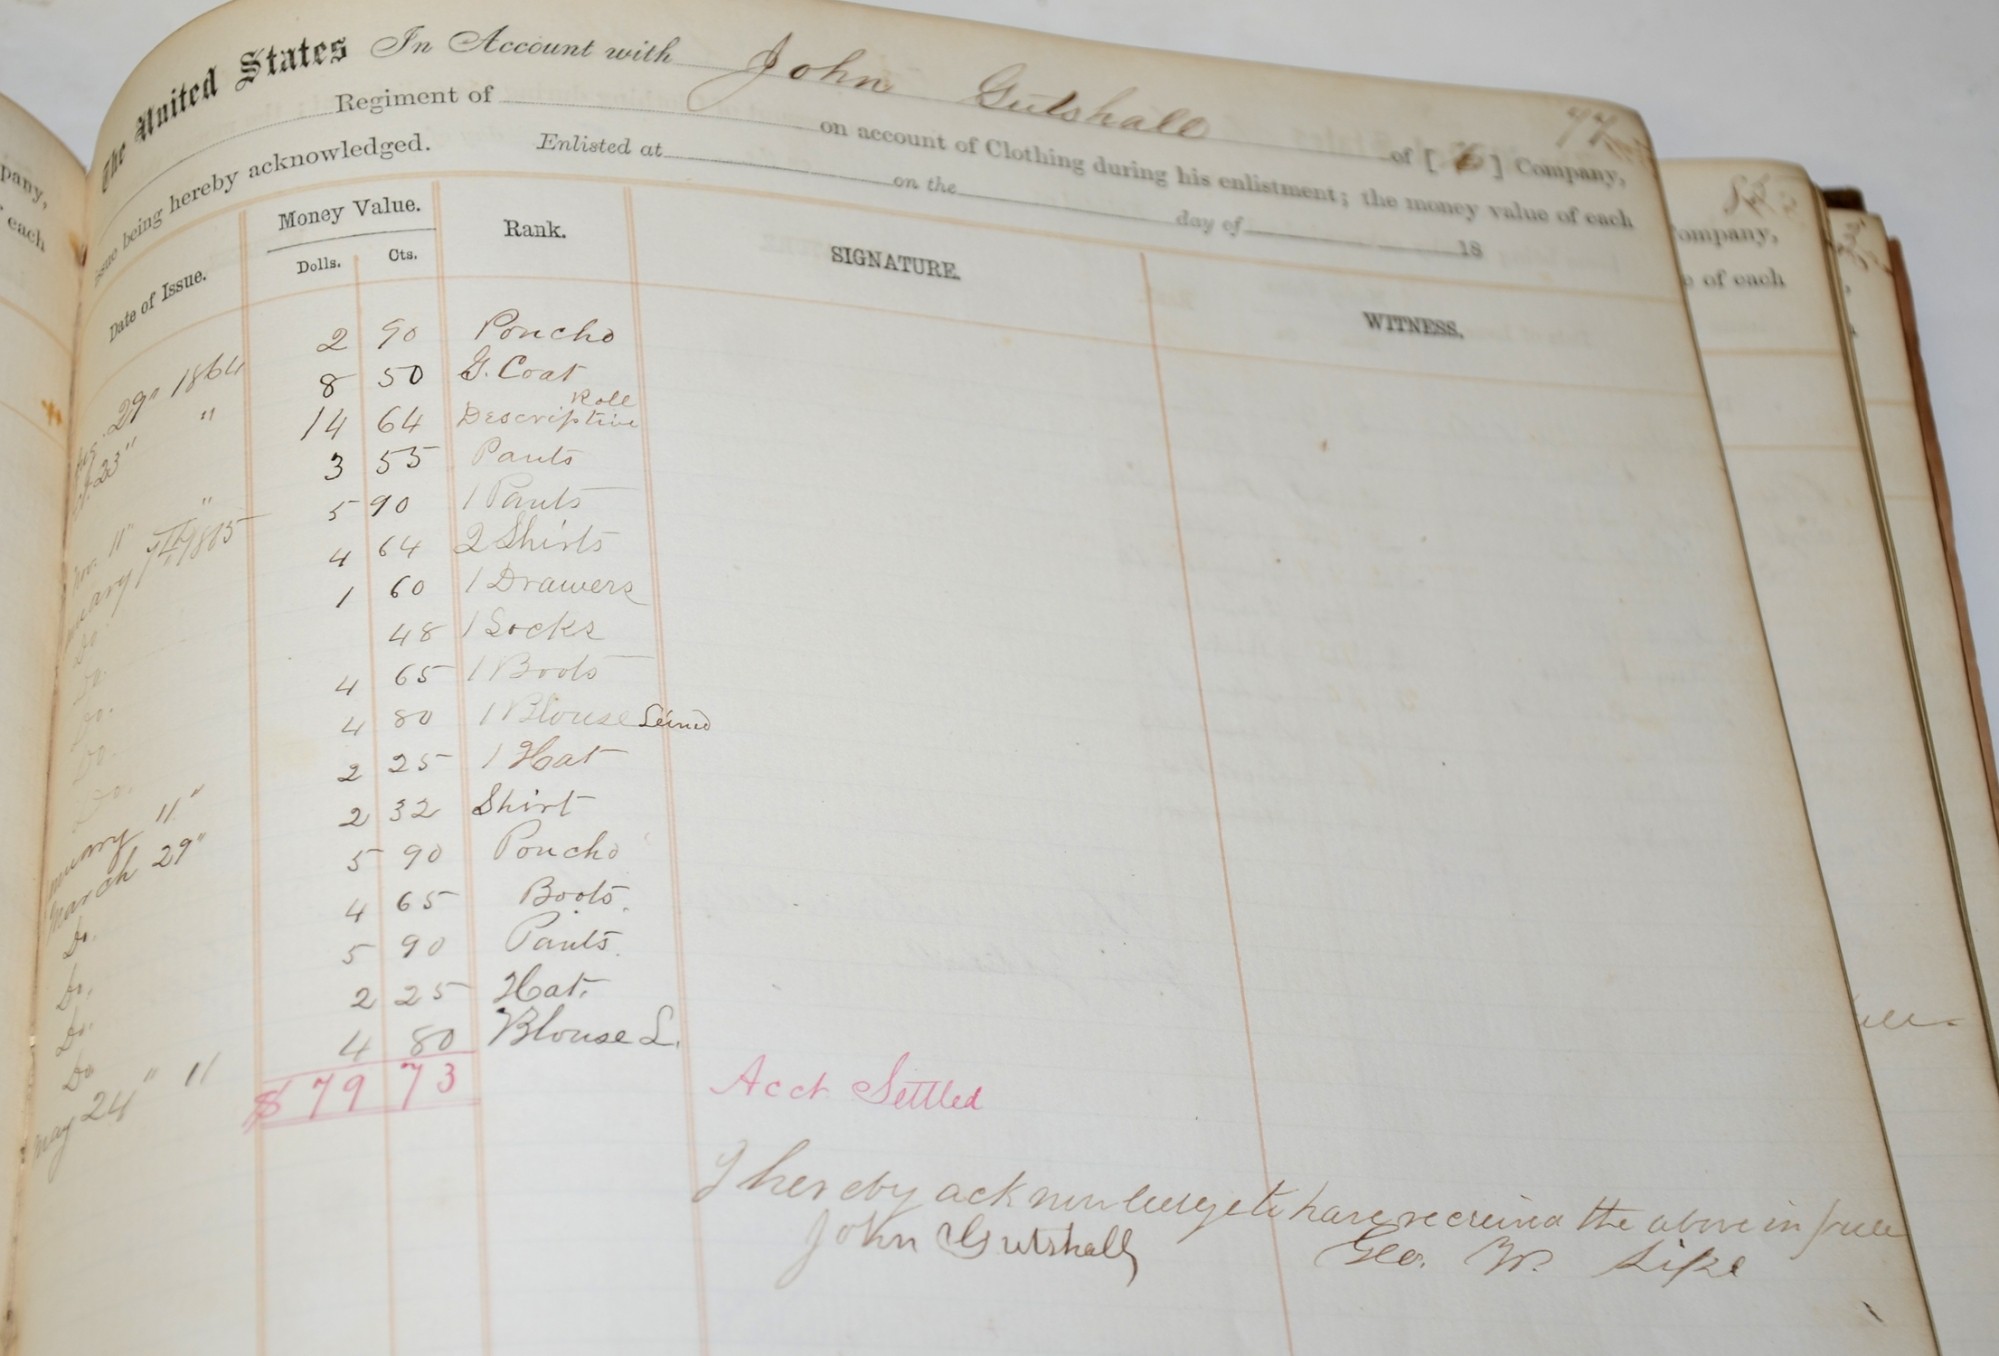 The United States In Account with John Gutshall
of [ ] Company,
Regiment of
on account of Clothing during his enlistment; the money value of each
issue being hereby acknowledged.
Enlisted at on the day of 18
Date of Issue. Money Value. Rank. SIGNATURE. WITNESS.
Dolls. Cts.
Aug. 29" 1864 2 90 Poncho
" 8 50 G. Coat
23" 14 64 Descriptive Roll
3 55 Pants
" 5 90 1 Pants
4 64 2 Shirts
Do. 1 60 1 Drawers
Do. 48 1 Socks
Do. 4 65 1 Boots
Do. 4 80 1 Blouse Lined
Do. 2 25 1 Hat
11" 2 32 Shirt
March 29" 5 90 Poncho
Do. 4 65 Boots.
Do. 5 90 Pants.
Do. 2 25 Hat.
Do 4 80 Blouse L.
May 24" "
$ 79 73 Acct Settled
I hereby acknowledge to have received the above in full
John Gutshall Geo. W. Sipe
pany,
each
Company,
of each